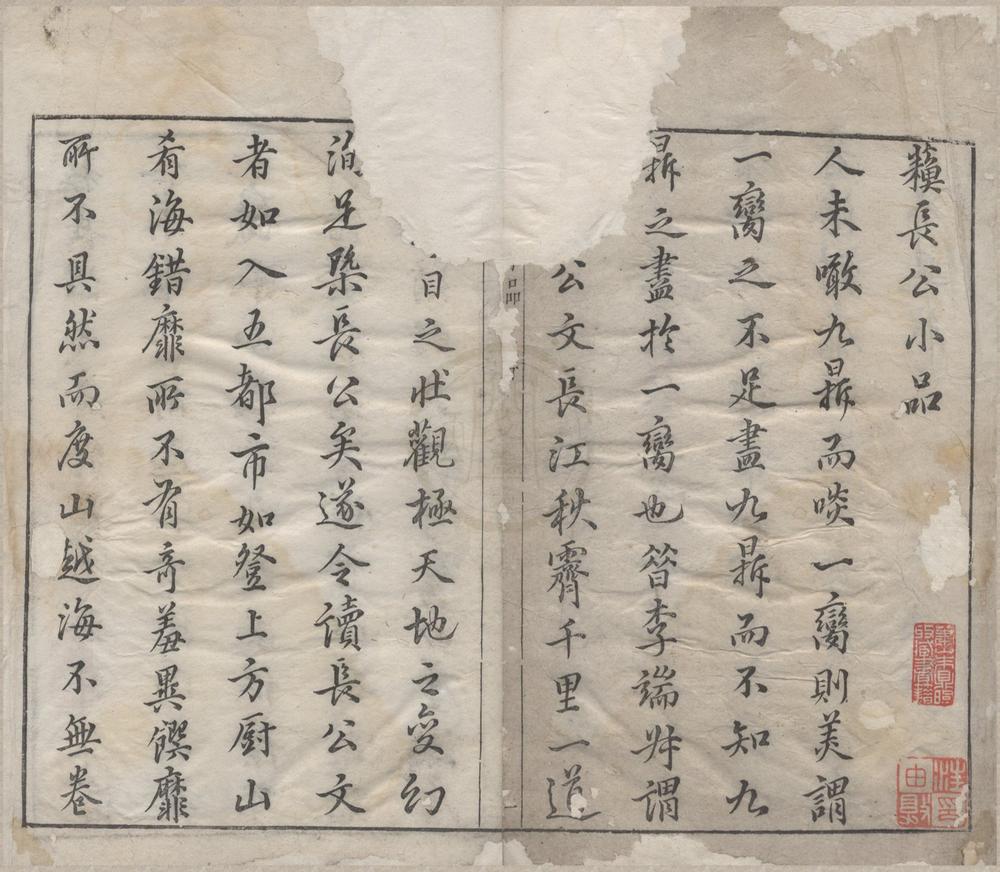 蘇長公小品
人未噉九鼎而啖一臠則美謂
一臠之不足盡九鼎而不知九
鼎之盡於一臠也昔李端叔謂
公文長江秋霽千里一道
目之壯觀極天地之變幻
洎足槩長公矣遂令讀長公文
者如入五都市如登上方厨山
肴海錯靡所不有奇羞異饌靡
所不具然而度山越海不無卷